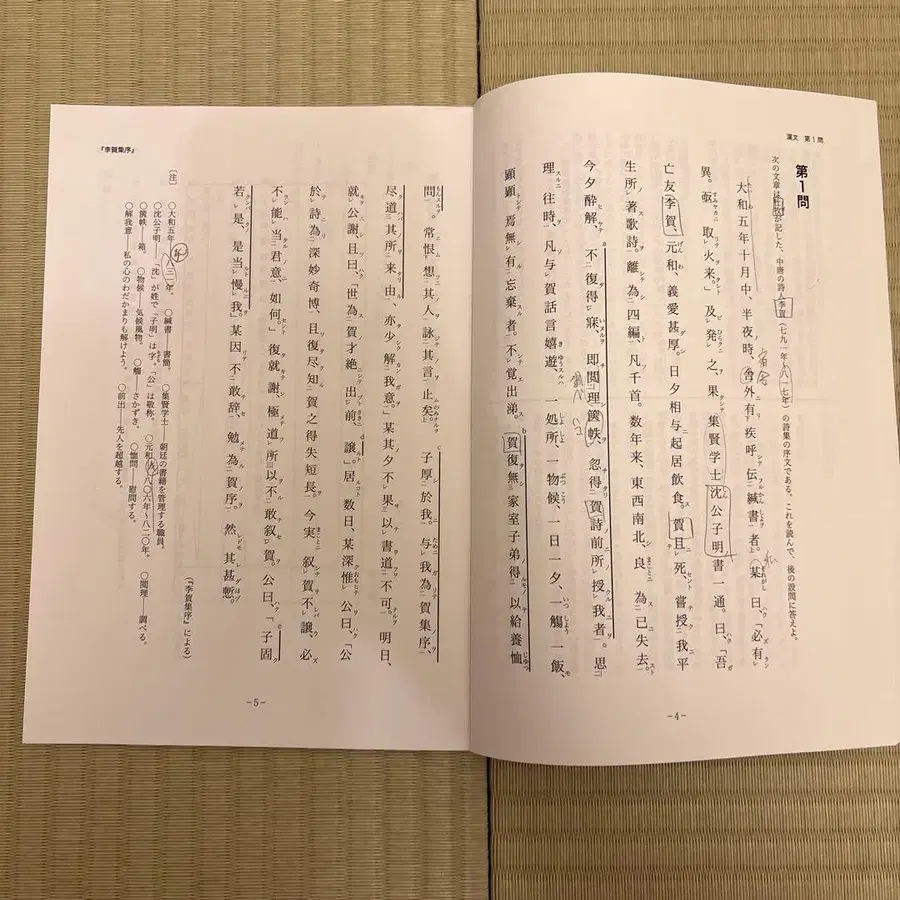 漢文 第1問
第1問
次の文章は杜牧が記した、中唐の詩人李賀(七九一年～八一七年)の詩集の序文である。これを読んで、後の設問に答えよ。
大和五年十月中、半夜時、舎外有疾呼伝緘書者。某曰、「必有
異。亟取火来。」及発之、果集賢学士沈公子明書一通。曰、「吾
亡友李賀、元和、義愛甚厚。日夕相与起居飲食。賀且死、嘗授我平
生所著歌詩。離為四編、凡千首。数年来、東西南北、良為已失去。
今夕酔解、不復得寐、即閲理篋帙、忽得賀詩前所授我者。思
理往時、凡与賀話言嬉遊、一処所、一物候、一日一夕、一觴一飯、
顕顕焉無有忘棄者。不覚出涕。賀復無家室子弟得以給養恤
－4－
『李賀集序』
問。常恨想其人、詠其言止矣。子厚於我。与我為賀集序、
尽道其所来由、亦少解我意。」某其夕不果以書道不可。明日、
就公謝、且曰、「世為賀才絶出前。」譲。居数日、某深惟公曰、「公
於詩為深妙奇博、且復尽知賀之得失短長。今実叙賀不譲、必
不能当君意、如何。」復就謝、極道所以不敢叙賀。公曰、「子固
若是、是当慢我。」某因不敢辞、勉為賀序。然其甚慙。
(『李賀集序』による)
〔注〕
○大和五年――八三一年。 ○緘書――書簡。 ○集賢学士――朝廷の書籍を管理する職員。
○沈公子明――「沈」が姓で「子明」は字。「公」は敬称。 ○元和――八〇六年～八二〇年。 ○閲理――調べる。
○篋帙――箱。 ○物候――気候風物。 ○觴――さかずき。 ○恤問――慰問する。
○解我意――私の心のわだかまりも解けよう。 ○前出――先人を超越する。
－5－